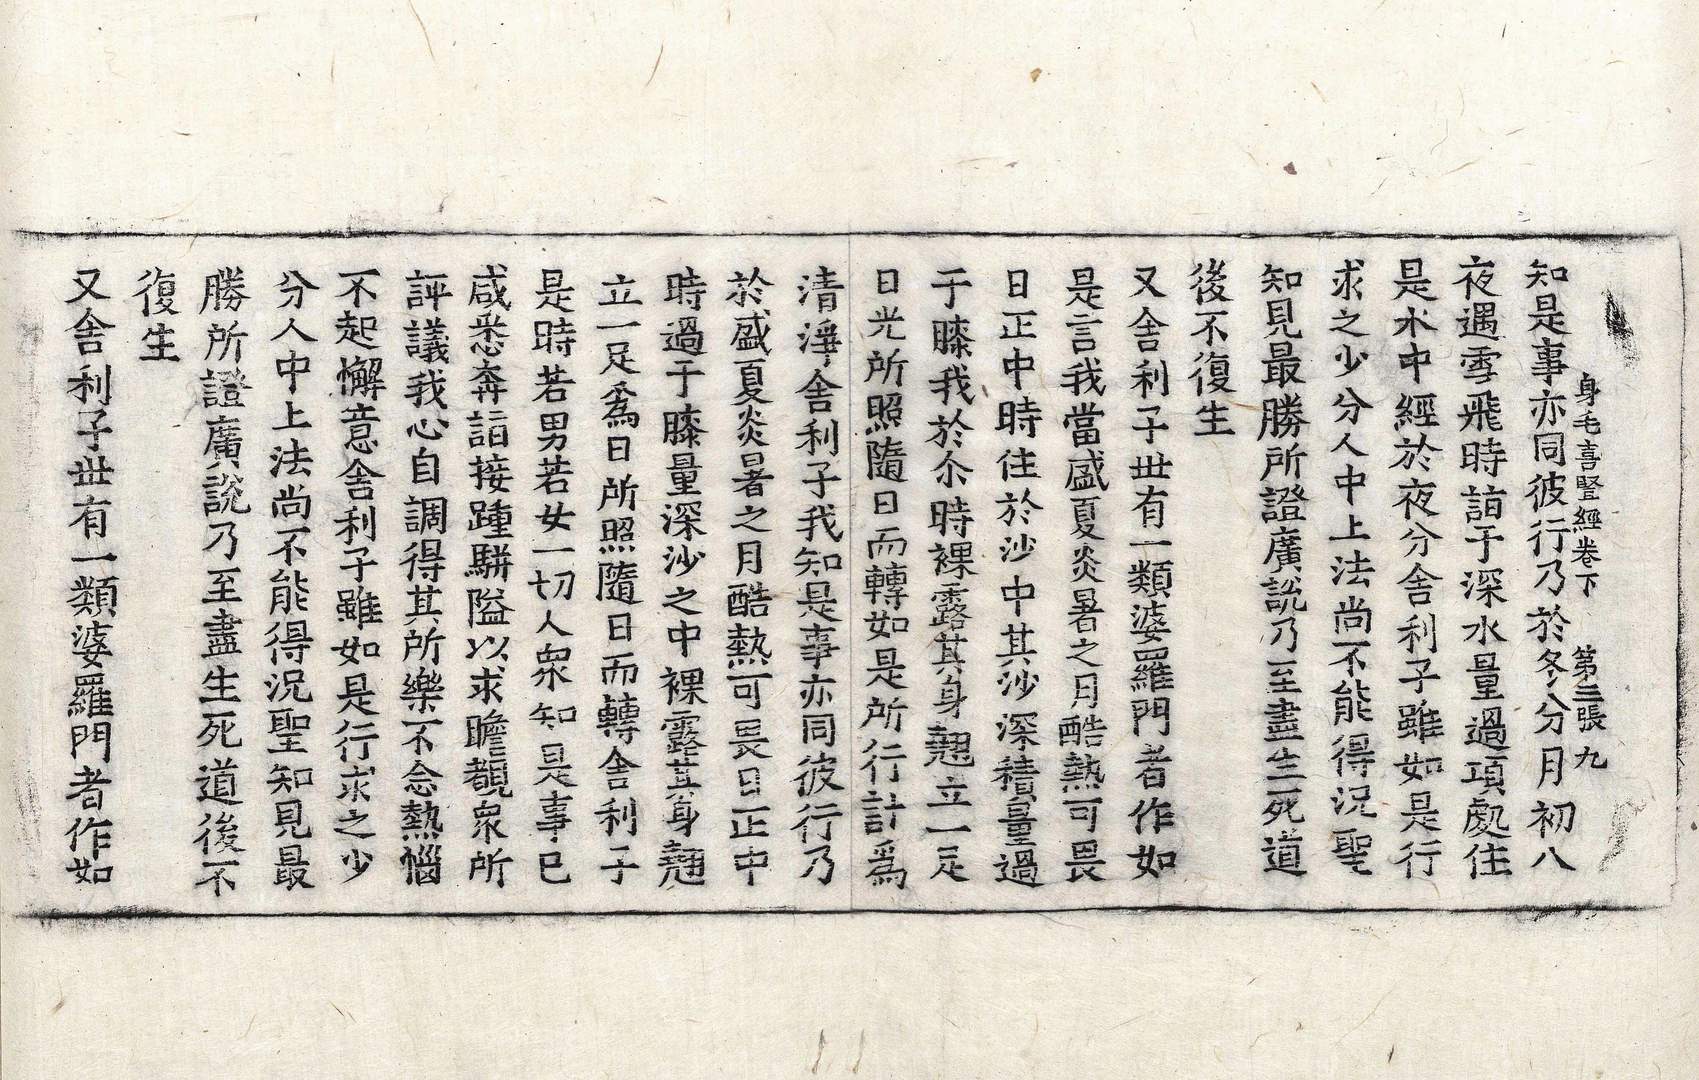 身毛喜竪經卷下 第三張 九
知是事亦同彼行乃於冬分月初八
夜遇雪飛時詣于深水量過項處住
是水中經於夜分舍利子雖如是行
求之少分人中上法尚不能得況聖
知見最勝所證廣說乃至盡生死道
後不復生
又舍利子世有一類婆羅門者作如
是言我當盛夏炎暑之月酷熱可畏
日正中時住於沙中其沙深積量過
于膝我於尒時裸露其身翹立一足
日光所照隨日而轉如是所行計爲
清淨舍利子我知是事亦同彼行乃
於盛夏炎暑之月酷熱可畏日正中
時過于膝量深沙之中裸露其身翹
立一足爲日所照隨日而轉舍利子
是時若男若女一切人衆知是事已
咸悉奔詣接踵騈隘以求瞻覩衆所
評議我心自調得其所樂不念熱惱
不起懈意舍利子雖如是行求之少
分人中上法尚不能得況聖知見最
勝所證廣說乃至盡生死道後不
復生
又舍利子世有一類婆羅門者作如